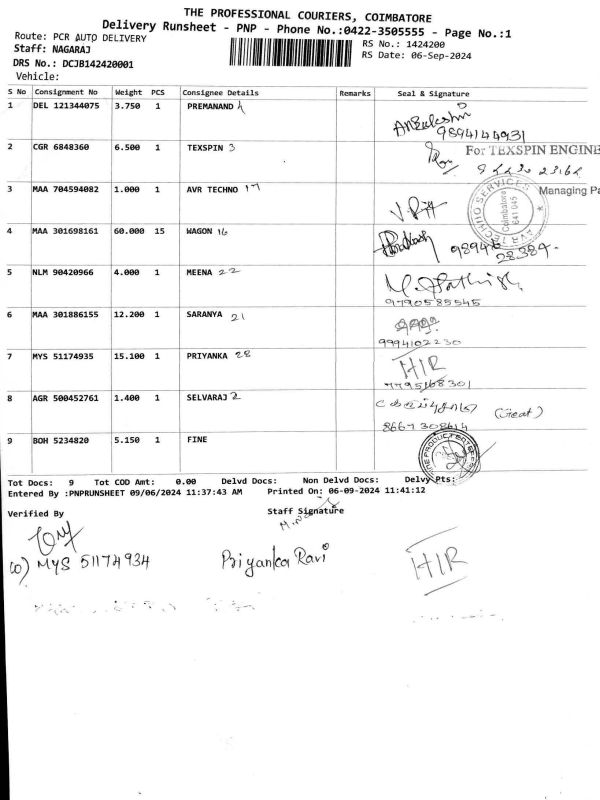 THE PROFESSIONAL COURIERS, COIMBATORE
Delivery Runsheet - PNP - Phone No.:0422-3505555 - Page No.:1
Route: PCR AUTO DELIVERY
RS No.: 1424200
Staff: NAGARAJ
RS Date: 06-Sep-2024
DRS No.: DCJB142420001
Vehicle:
S No Consignment No Weight PCS Consignee Details Remarks Seal & Signature
1 DEL 121344075 3.750 1 PREMANAND 4
9894144931
2 CGR 6848360 6.500 1 TEXSPIN 3
For TEXSPIN ENGINE
Managing Pa
3 MAA 704594082 1.000 1 AVR TECHNO 17
AVR TECHNO SERVICES
Coimbatore
641 045
4 MAA 301698161 60.000 15 WAGON 16
98948
28384
5 NLM 90420966 4.000 1 MEENA 22
9790585545
6 MAA 301886155 12.200 1 SARANYA 21
9994102230
7 MYS 51174935 15.100 1 PRIYANKA 28
HIR
7795168301
8 AGR 500452761 1.400 1 SELVARAJ 2
8667308614
9 BOH 5234820 5.150 1 FINE
Tot Docs: 9 Tot COD Amt: 0.00 Delvd Docs: Non Delvd Docs: Delvy Pts:
Entered By :PNPRUNSHEET 09/06/2024 11:37:43 AM Printed On: 06-09-2024 11:41:12
Verified By Staff Signature
10) MYS 51174934 Priyanka Ravi HIR